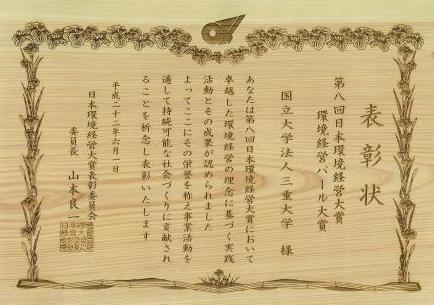 表彰状
第八回日本環境経営大賞
環境経営パール大賞
国立大学法人三重大学 様
あなたは第八回日本環境経営大賞において
卓越した環境経営の理念に基づく実践
活動とその成果が認められました
よってここにその栄誉を称え事業活動を
通して持続可能な社会づくりに貢献され
ることを祈念し表彰いたします
平成二十二年六月一日
日本環境経営大賞表彰委員会
委員長 山本良一